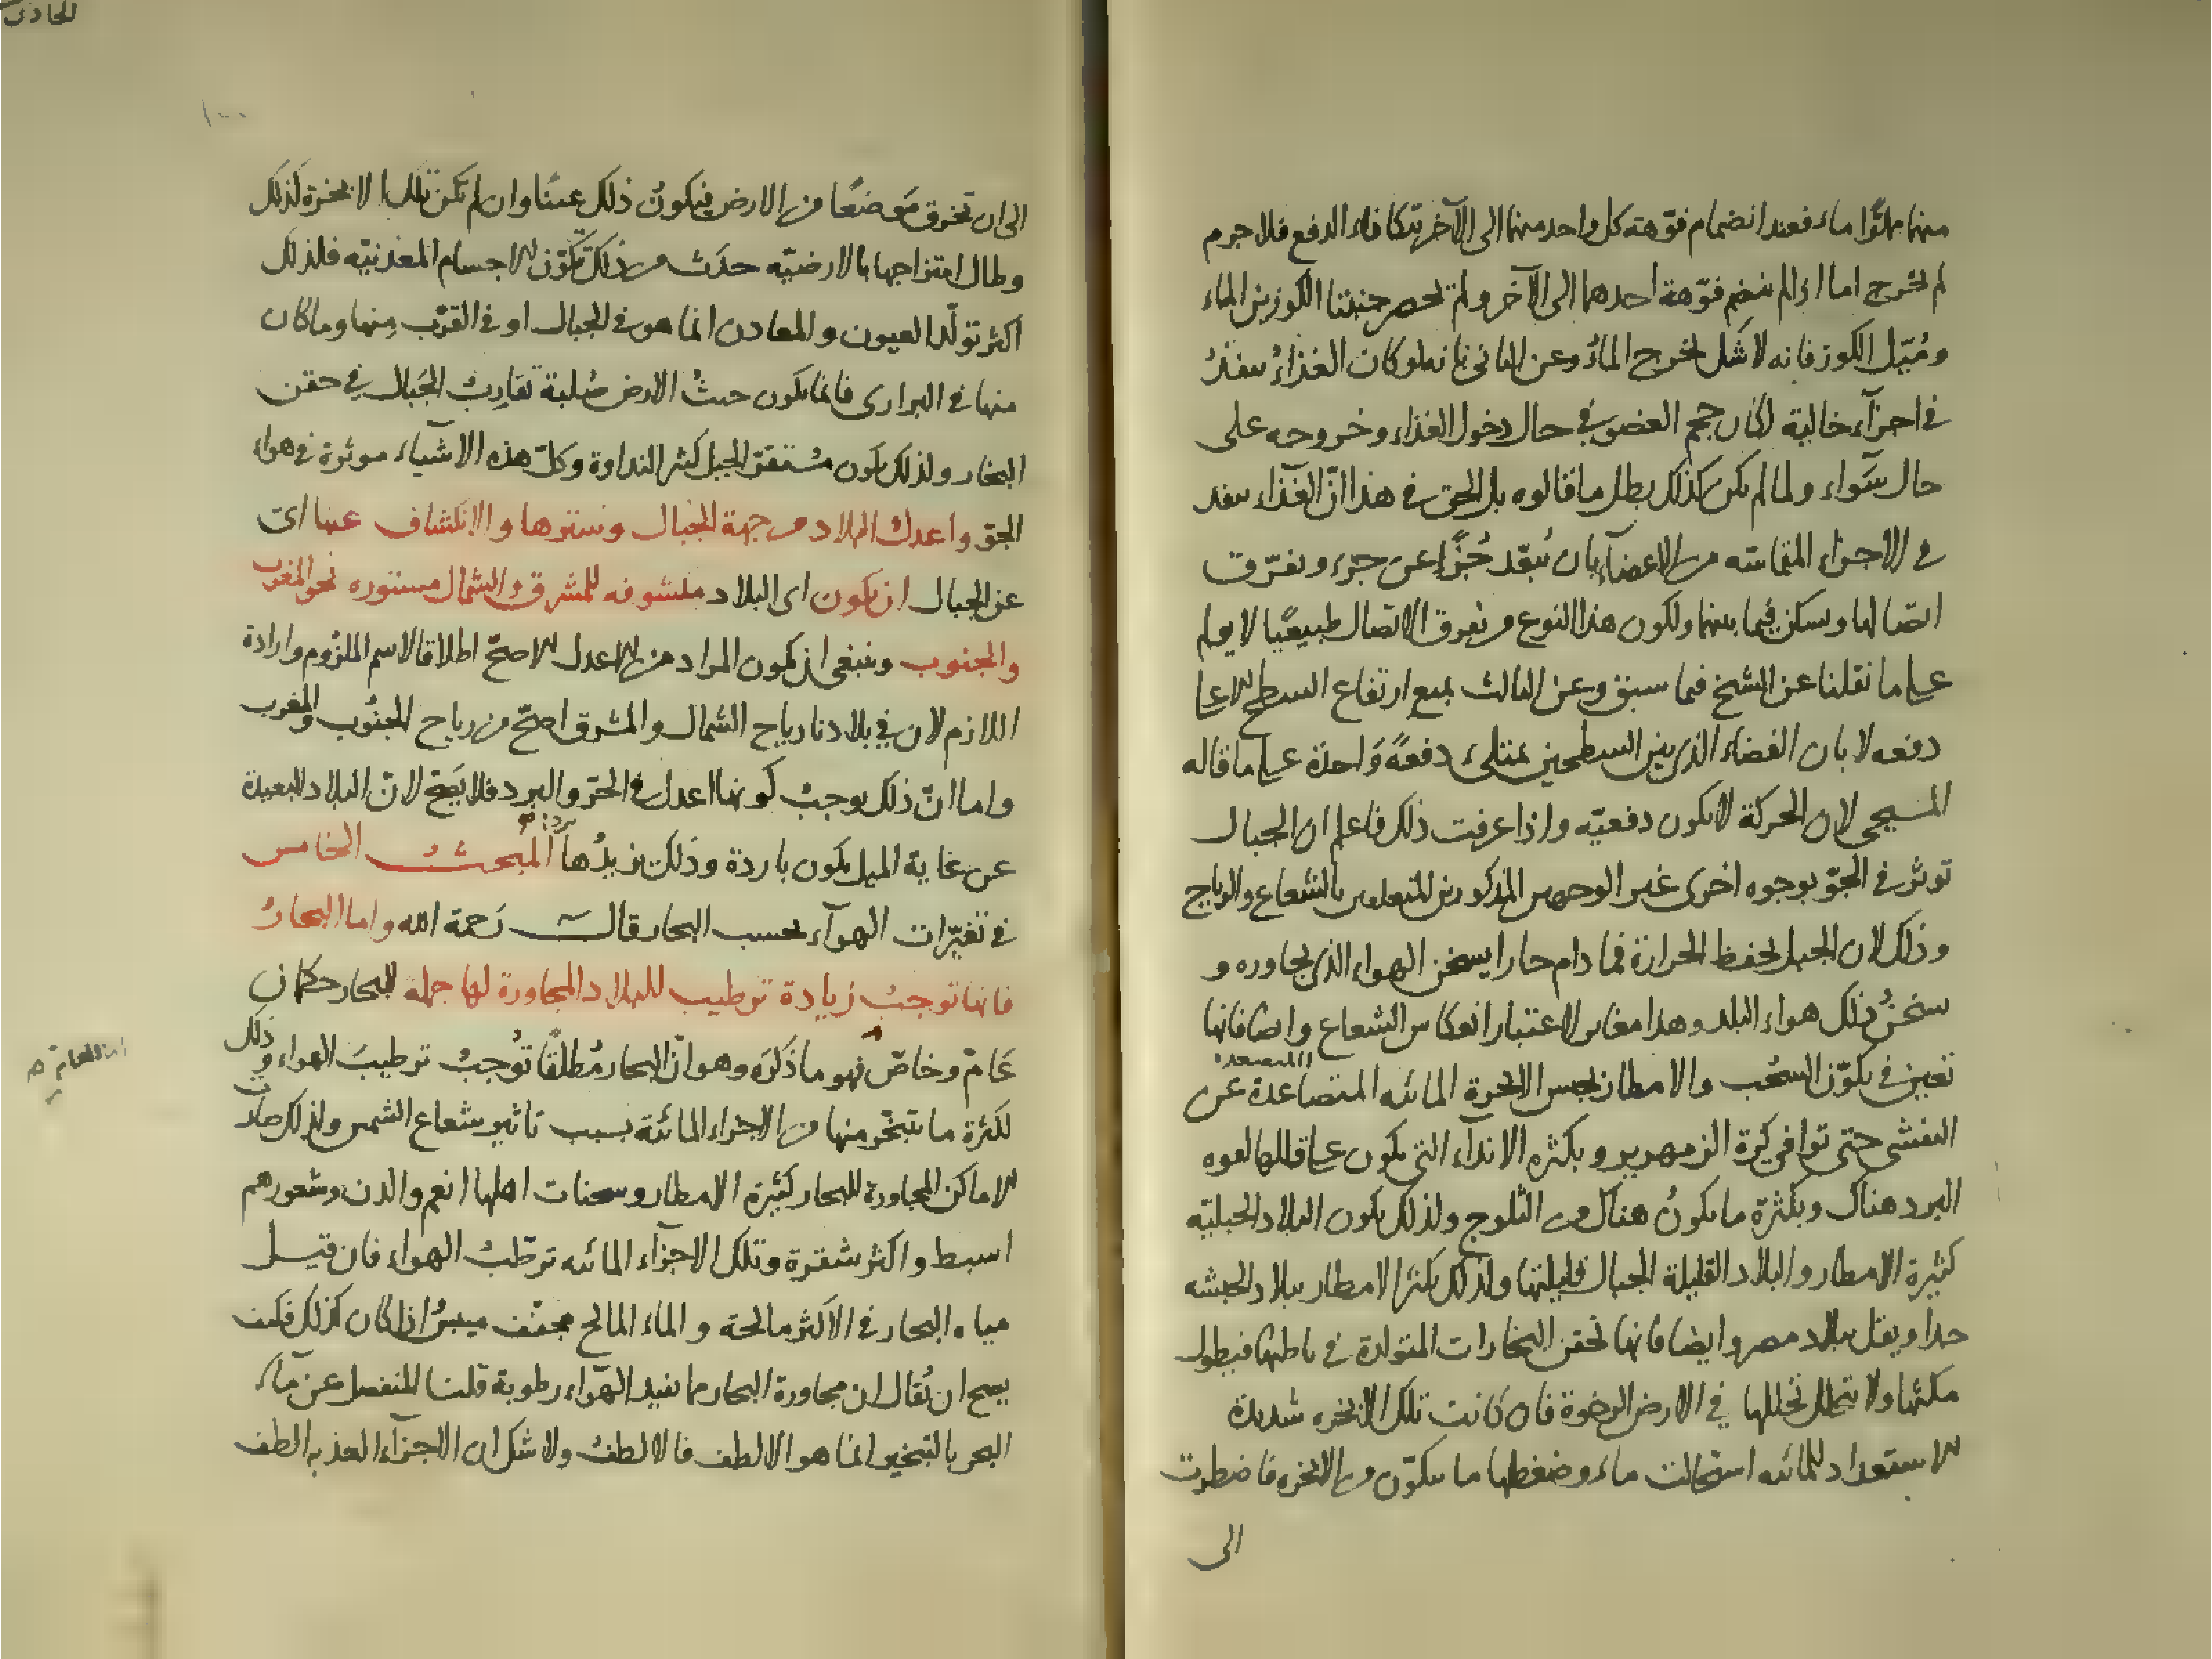 منها مملوًّا ماء فعند انضمام فوّهة كل واحد منهما الى الآخر يتكافاء الدفع فلا جرم
لم يخرج اما اذا لم ينضم فوّهة احدهما الى الآخر ولم تحصر جنبتا الكوزين الماء
ومُيّل الكوز فانه لا شك يخرج الماءُ وعن الثانى بانه لو كان الغذاءُ ينفذُ
فى اجزآء خالية لكان حجم العضو فى حال دخول الغذاء وخروجه على
حال سَواء ولما لم يكن كذلك بطل ما قالوه بل الحق فى هذا انّ الغذآء ينفد
فى الاجزاء المتماسّه من الاعضآء بان يُبعّد جُزًا عن جزء ويفرّق
اتصالها ويسكن فيما بينها ولكون هذا النوع من تفرق الاتصال طبيعيًا لا يولم
على ما نقلنا عن الشيخ فيما سبق وعن الثالث بمنع ارتفاع السطح الاعلى
دفعه لا بان الفضاء الذى بين السطحين يمتلىء دفعةً وَاحدة على ما قاله
المسيحى لان الحركة لا يكون دفعيّه واذا عرفت ذلك فاعلم ان الجبال
توثر فى الجوّ بوجوه اخرى غير الوجهين المذكورين المتعلقين بالشعاع والرياح
وذلك لان الجبل يحفظ الحرارة فما دام حارا يسخن الهواء الذى يجاوره و
سخنُ ذلك هواء البلد وهذا مغاير لاعتبار انعكاس الشعاع وايضا فانها
تعين فى تكوّن السُحُب والامطار بحبس الابخرة المائيه المتصاعدة عن
التفشى حتى توافى كرة الزمهرير وبكثره الانداء التى يكون على قللها لقوه
البرد هناك وبكثرة ما يكونُ هناك من الثلوج ولذلك يكون البلاد الجبليّه
كثيرة الامطار والبلاد القليلة الجبال قليلتها ولذلك يكثر الامطار ببلاد الحبشه
جدا ويقل ببلاد مصر وايضا فانها تحقن البخارات المتولدة فى باطنها فيطول
مكثها ولا يتحلل تحللها فى الارض الرخوة فان كانت تلك الابخره شديدة
الاستعداد للمائيه استحالت ماء وضغطها ما يتكوّن من الابخره فاضطرت
الى
الى ان تخرق مَوضعًا من الارض فيكون ذلك عينًا وان لم تكن تلك الابخرة كذلك
وطال امتزاجها بالارضيّه حدَث من ذلك تكَوّن الاجسام المعدنيّه فلذلك
اكثر تولّد العيون والمعادن انما هو فى الجبال او فى القرْب منها وما كان
منها فى البرارى فانما يكون حيثُ الارض صُلبة تقارِبُ الجَبال فى حقن
البخار ولذلك يكون مُستنقع الجبل كثير النداوة وكلّ هذه الاشياء موثرة فى هواء
الجوّ واعدل البلاد من جهة الجبال وسترها والانكشاف عنها اى
عن الجبال ان يكون اى البلاد مكشوفه للمشرق والشمال مستوره نحو المغرب
والجنوب وينبغى ان يكون المراد من الاعدل الاصحّ اطلاقا لاسم الملزوم وارادة
اللازم لان فى بلادنا رياح الشمال والمشرق اصحّ من رياح الجنُوب والمغرب
واما انّ ذلك يوجبُ كونها اعدل فى الحرّ والبرد فلا يَصحّ لانّ البلاد البعيدة
عن غاية الميل يكون باردة وذلك يزيدُها بردًا المبحث الخامس
فى تغيّرات الهوآء بحسب البحار قال رَحمة الله واما البحارُ
فانها توجبُ زيادة ترطيب للبلاد المجاورة لها جملة للبحار حكمان
عَامّ وخاصّ فهو ما ذكرَه وهو انّ البحار مُطلقًا تُوجبُ ترطيبَ الهواء وذلك
لكثرة ما يتبخّر منها من الاجزاء المائية بسبب تاثير شعاع الشمس ولذلك صارت
الاماكن المجاورة للبحار كثيرة الامطار وسحنات اهلها انعم والدن وشعورهم
اسبط واكثر شقرة وتلك الاجزآء المائيه ترطّبُ الهواء فان قيل
مياه البحار فى الاكثر مالحة والماء المالح مجفّف ميبسٌ اذا كان كذلك فكيف
يصح ان يُقال ان مجاورة البحار مما يفيد الهَوآء رطوبة قلنا المنفصل عن مآء
البحر بالتبخير انما هو الالطف فالالطفُ ولا شك ان الاجزآء العذبه الطف
اما العام